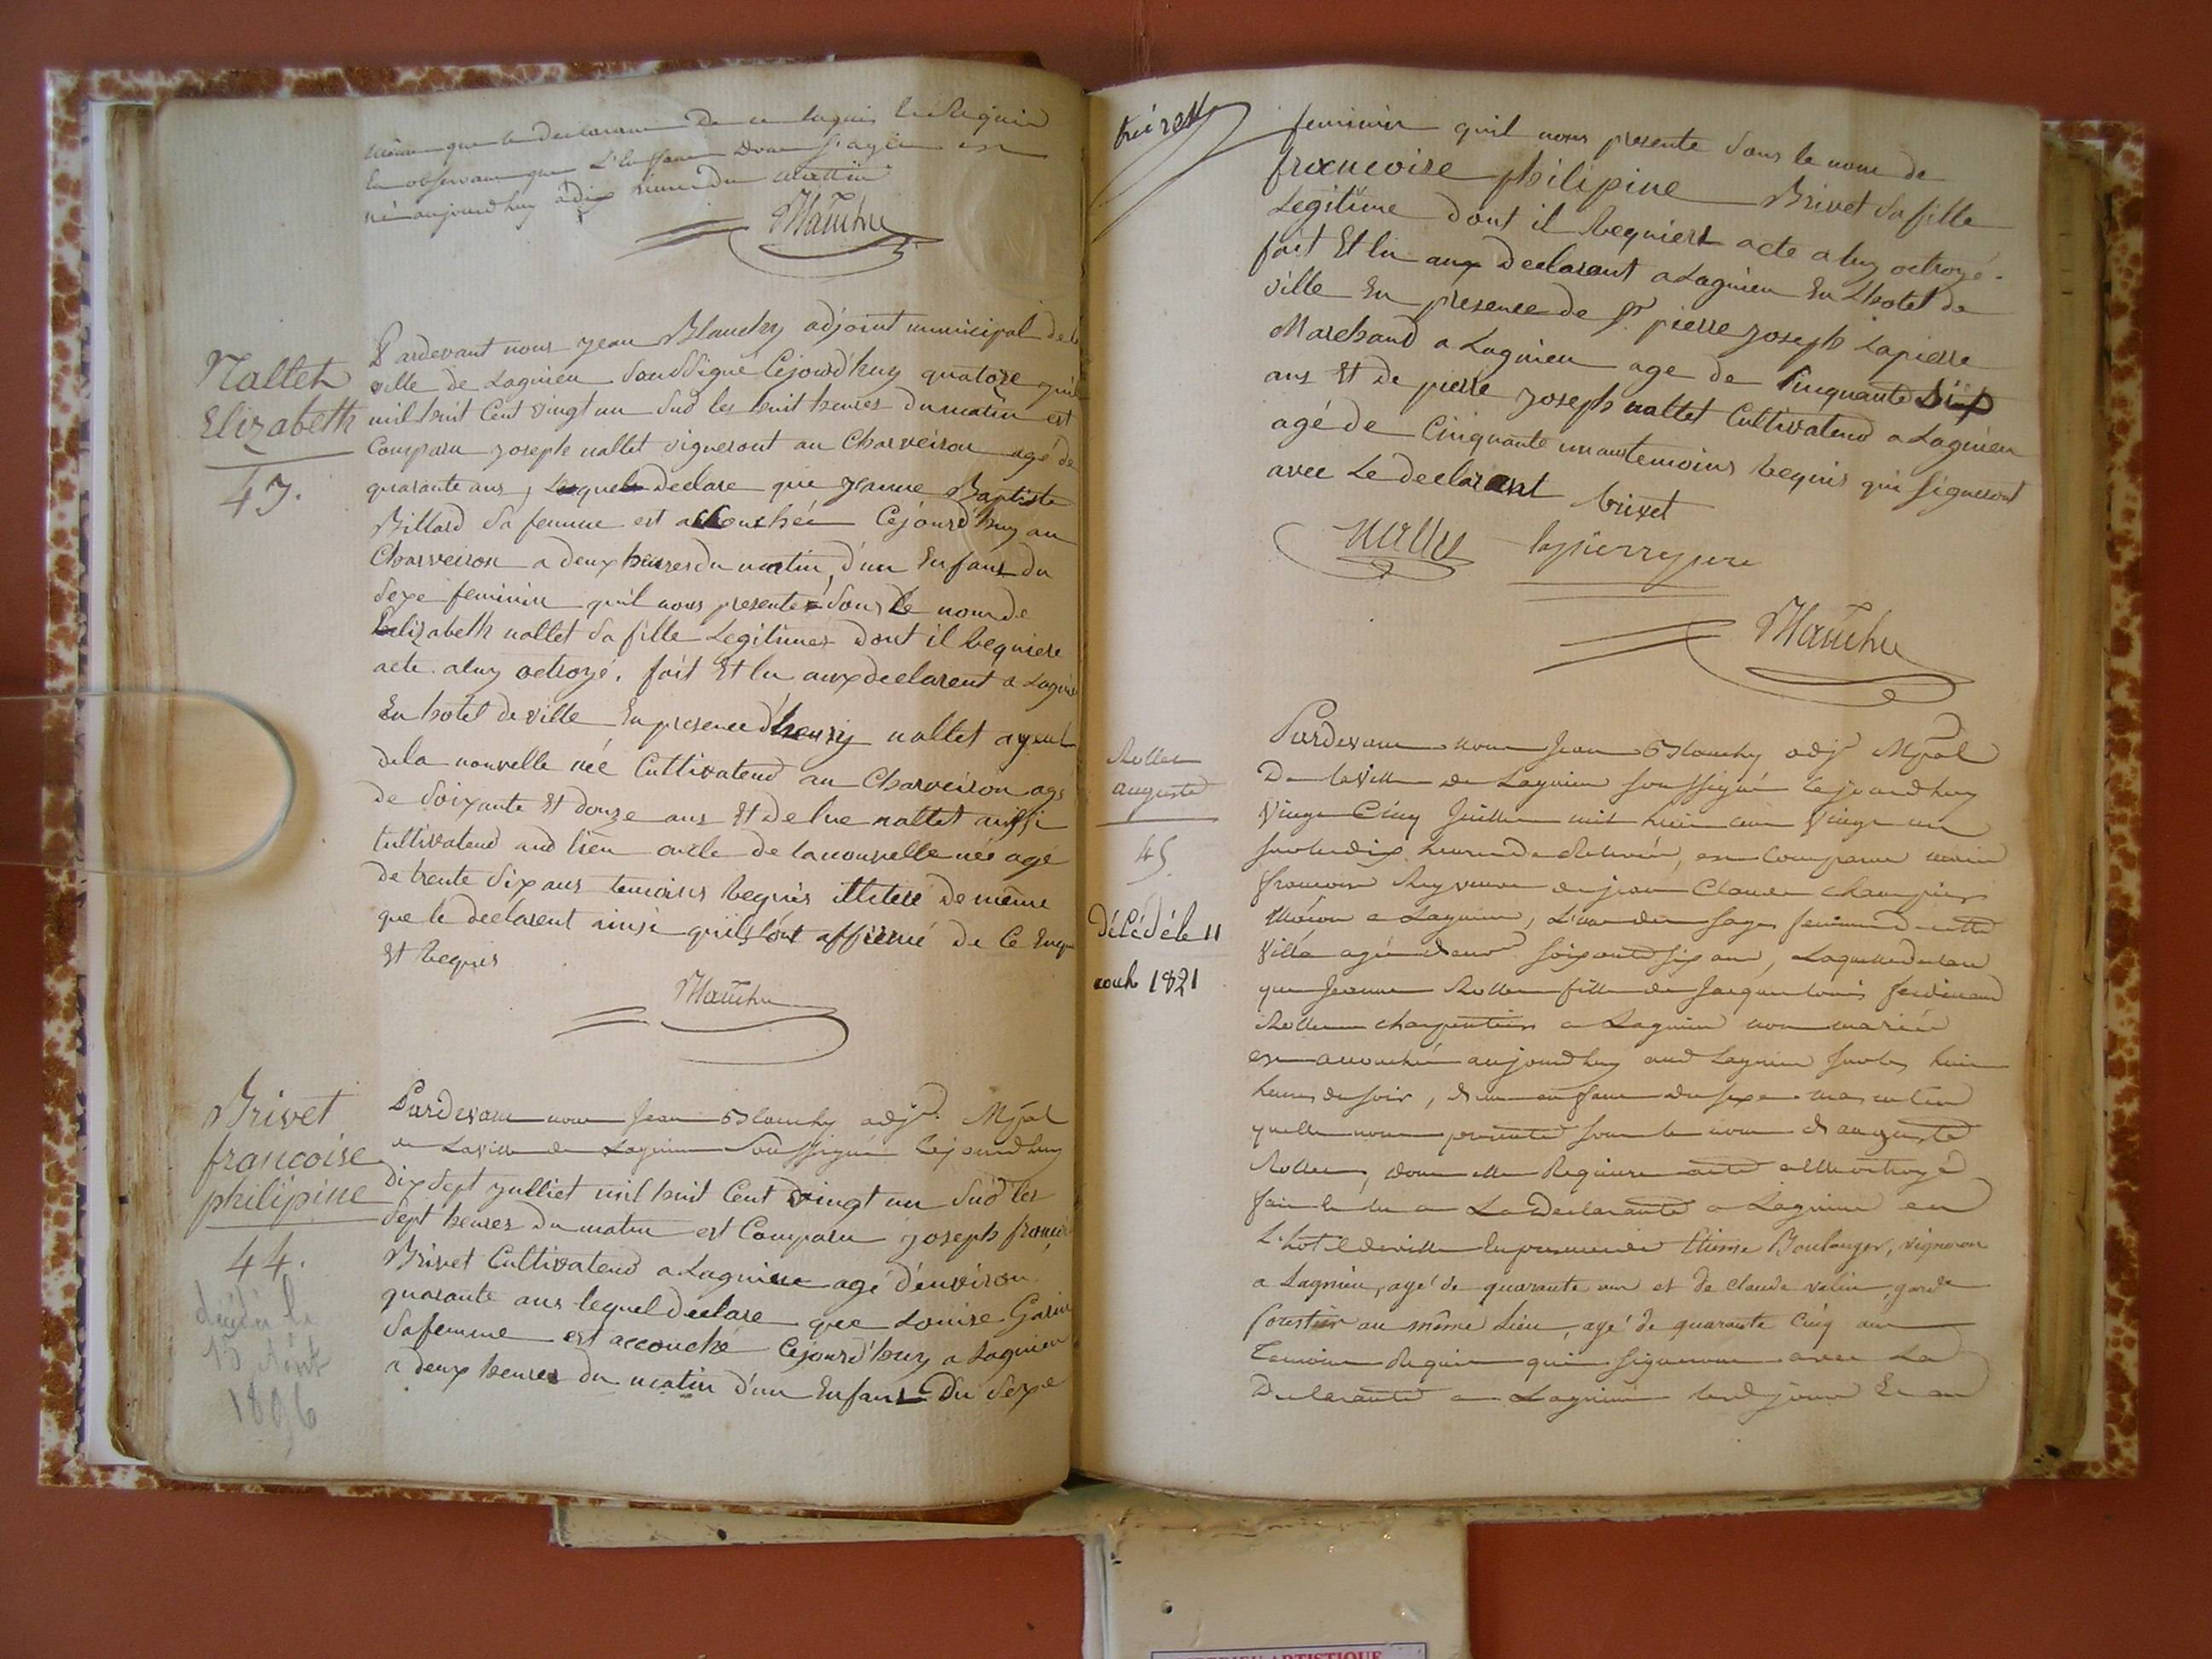 même que le declarant De ce Enquis et Requis
En observant que L'Enfant Dont s'agit est
né aujourdhuy à dix heures du mattin
Blanchy
Nallet
Elizabeth
43.
Pardevant nous jean Blanchy adjoint municipal de la
ville de Lagnieu Soussigné Cejourd'huy quatorze juil
mil huit Cent vingt un Sur les huit heures du matin est
Comparu joseph nallet vigneront au Charveiron agé de
quarante ans, Lequel Declare que jeanne Baptiste
Billard Sa femme est accouchée Cejourd'huy au
Charveiron a deux heures du matin, d'un Enfant du
Sexe feminin qu'il nous presente Sous Le nom de
Elizabeth nallet Sa fille Legitimes Dont il Requiere
acte a luy octroyé. fait Et lu aux declarent a Lagnieu
En hotel de ville En presence d'henry nallet ayeul
de la nouvelle née Cultivateur au Charveiron agé
de Soixante Et douze ans Et de luc nallet aussi
Cultivateur aud lieu oncle de la nouvelle née agé
de trente Six ans temoins Requis illiteré De même
que le declarent ainsi qu'ils l'ont affirmé De Ce Enquis
Et Requis
Blanchy
Brivet
francoise
philipine
44.
décédée le
15 Août
1896
Pardevant nous Jean Blanchy adjt. Mpal
de La ville de Lagnieu Soussigné Cejourdhuy
dix Sept julliet mil huit Cent vingt un Sur les
Sept heures du matin est Comparu joseph francois
Brivet Cultivateur a Lagnieu agé d'environ
quarante ans lequel declare que Louise Garin
Sa femme est accouché Cejourd'huy a Lagnieu
a deux heures du matin d'un Enfant Du Sexe
feminin qu'il nous presente Sous le nom de
francoise philipine Brivet Sa fille
Legitime dont il Requiert acte a luy octroyé.
fait Et lu aux Declarant a Lagnieu En L'hotel de
ville En presence de Sr. pierre joseph Lapierre
Marchand a Lagnieu age de Cinquante Six
ans Et de pierre joseph nallet Cultivateur a Lagnieu
agé de Cinquante un ans temoins Requis qui Signeront
avec Le declarant brivet
nallet lapierre pere
Blanchy
Rollet
auguste
45.
Décédé le 11
août 1821
Pardevant nous Jean Blanchy adjt Mpal
De la ville de Lagnieu soussigné cejourdhuy
vingt Cinq Juillet mil huit cent vingt un
sur les dix heures de relevée, est Comparue marie
francoise Rey veuve de jean Claude champier
a Lagnieu, L'une des sages femmes de cette
ville agée d'env. soixante six ans, Laquelle declare
que Jeanne Rollet fille de Jacques louis ferdinand
Rollet charpentier a Lagnieu non mariée
est accouchée aujourdhuy aud Lagnieu sur les huit
heures du soir, d'un enfant du sexe masculin
quelle nous presente sous le nom d'auguste
Rollet, dont elle Requiere acte a Elle octroyé
fait et lu a La Declarante a Lagnieu en
L'hotel de ville En presence de Etienne Boulanger, vigneron
a Lagnieu, agé de quarante ans et de claude valin, garde
forestier au même Lieu, agé de quarante Cinq ans
Temoins Requis qui signeront avec La
Declarante a Lagnieu lesd jour Et an